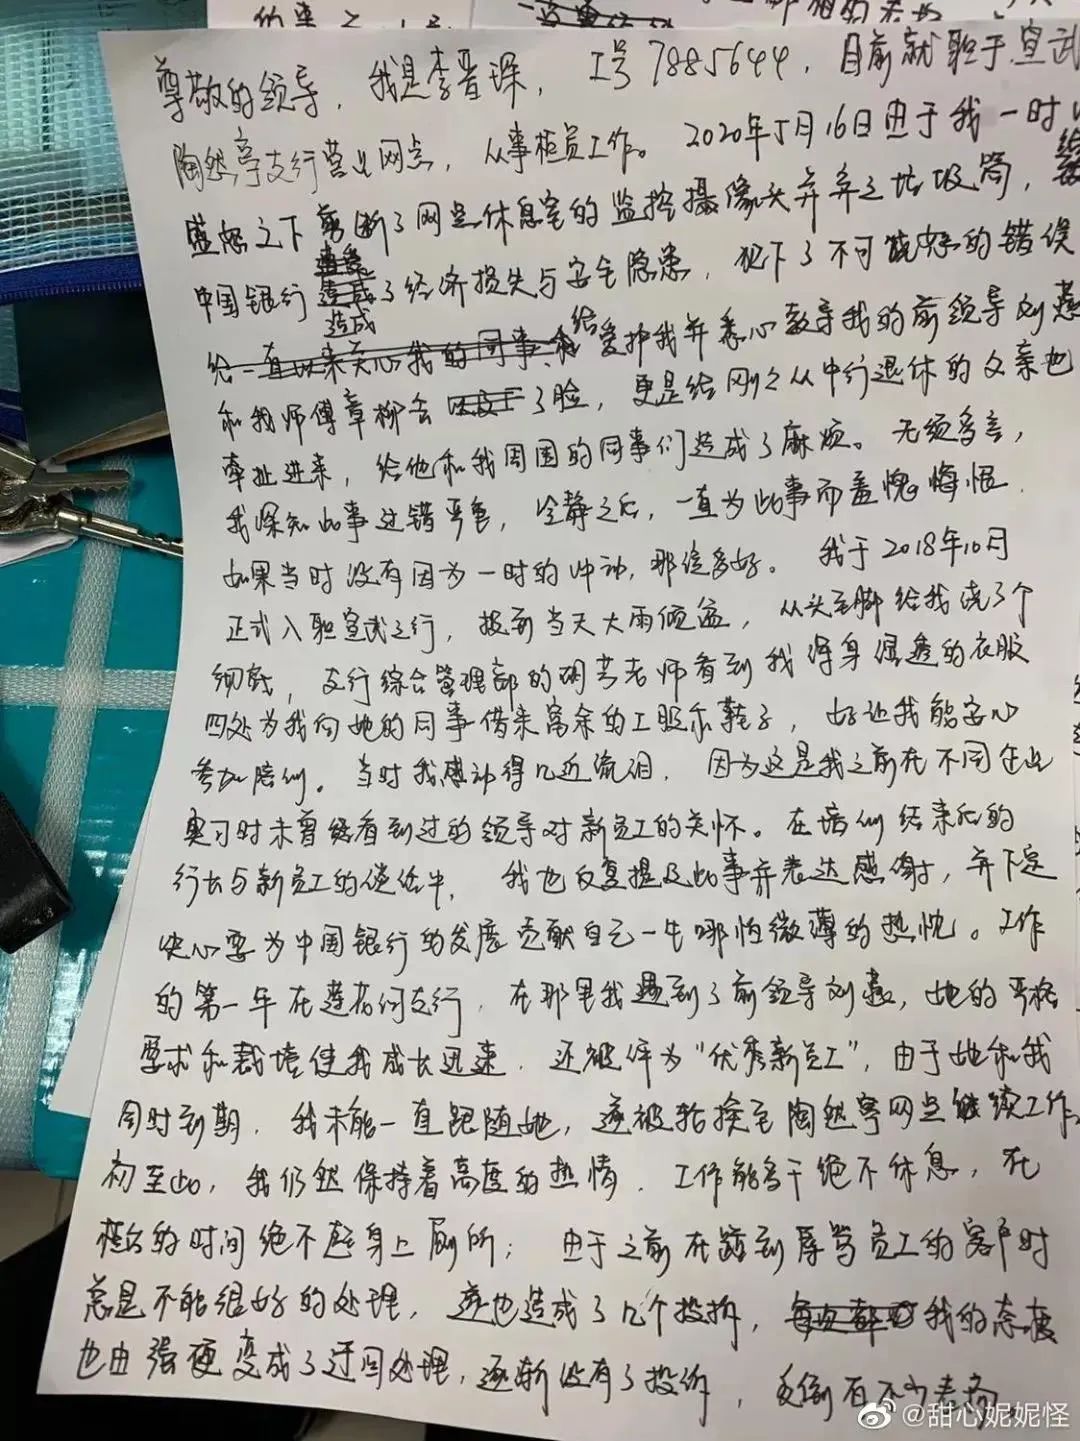 尊敬的领导，我是李晋琛，工号7885644，目前就职于宣武
陶然亭支行营业网点，从事柜员工作。2020年5月16日由于我一时
盛怒之下剪断了网点休息室的监控摄像头并弃之垃圾筒，给
中国银行造成了经济损失与安全隐患，犯下了不可饶恕的错误
给一直以来关心我的同事 给爱护我并悉心教导我的前领导刘燕
和我师傅章柳去 了脸，更是给刚刚从中行退休的父亲也
牵扯进来，给他和我周围的同事们造成了麻烦。无须多言，
我深知此事过错严重，冷静之后，一直为此事而羞愧悔恨
如果当时没有因为一时的冲动，那该多好。我于2018年10月
正式入职宣武支行，报到当天大雨倾盆，从头至脚给我浇了个
彻底，支行综合管理部的胡芳老师看到我浑身湿透的衣服
四处为我向她的同事借来富余的工服和鞋子，好让我能安心
参加培训。当时我感动得几近流泪，因为这是我之前在不同企业
实习时未曾经看到过的领导对新员工的关怀。在培训结束后的
行长与新员工的谈话中，我也反复提及此事并表达感谢，并下定
决心要为中国银行的发展贡献自己一生哪怕微薄的热忱。工作
的第一年在莲花河支行，在那里我遇到了前领导刘燕，她的严格
要求和栽培使我成长迅速，还被评为“优秀新员工”，由于她和我
同时到期，我未能一直跟随她，遂被轮换至陶然亭网点继续工作。
初至此，我仍然保持着高度的热情，工作能多干绝不休息，在
的时间绝不起身上厕所；由于之前在踫到辱骂员工的客户时
总是不能很好的处理，遂也造成了几个投诉，我的态度
也由强硬变成了迂回处理，逐渐没有了投诉，反倒有不少表扬。
@甜心妮妮怪